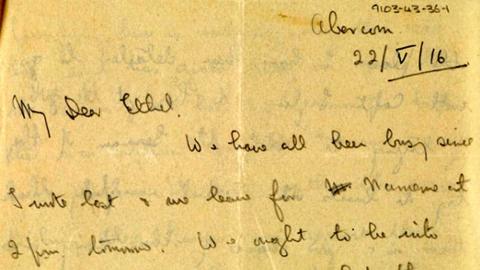 9103-43-36-1
Abercorn
22/V/16.
My Dear Ethel.
We have all been busy since
I wrote last & we leave for Namema at
2 p.m. tomorrow. We ought to be into